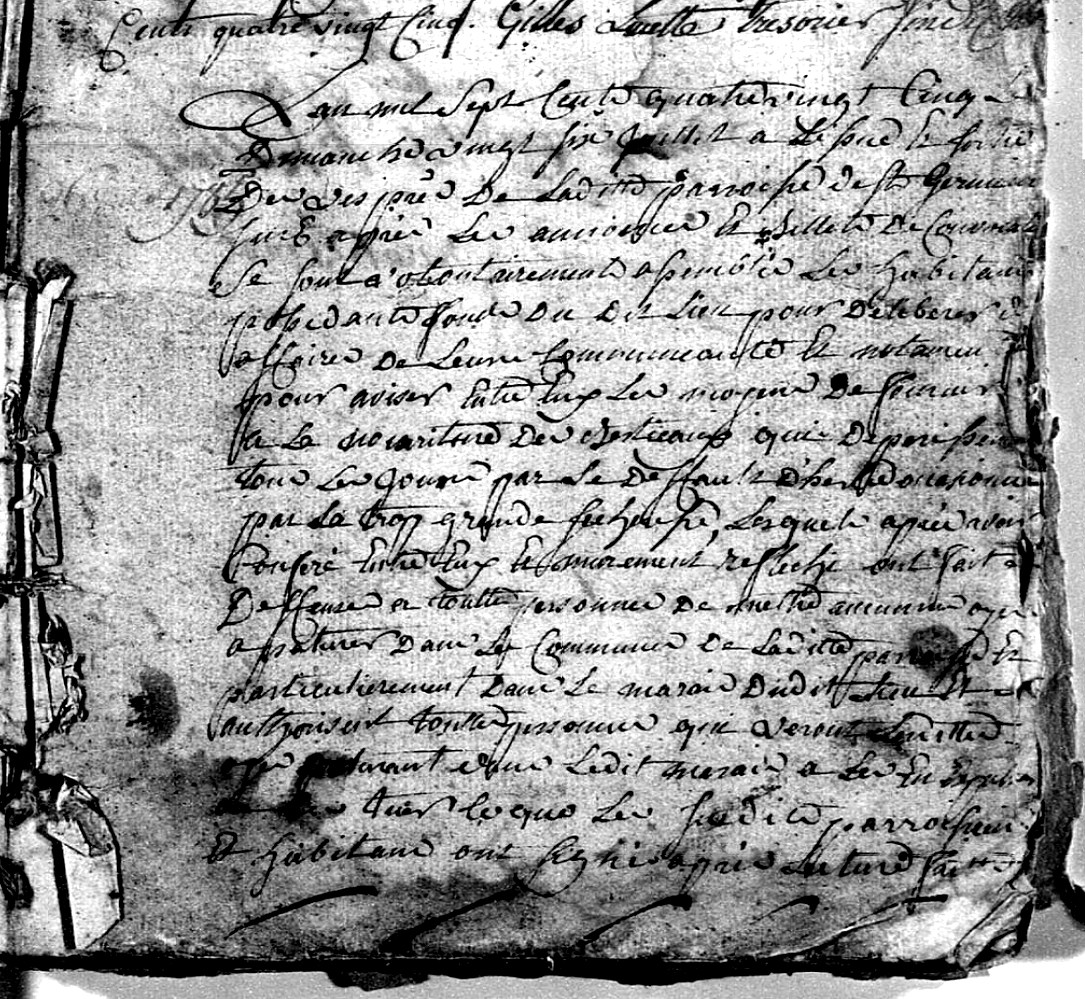 Cents quatre vingt Cinq. Gilles Luette Tresorier sindic
Lan mil Sept Cents quatre vingt Cinq Le
Dimanche vingt six Juillet a Lissue et sortie
1785 Des vespres De Laditte parroisse de st Germain
sur apres Les annonces et billets De Coutume
se sont volontairement assemblés Les habitans
possedants fonds Du Dit Lieu pour Deliberer des
affaires De Leurs Communeauté et notament
pour aviser Entre Eux Les moyens De fournir
a La nouriture Des bestieaux qui Deperissent
tous Les Jours par Le Deffault D'herbe
par La trop grande secheresse, Lesquels apres avoir
Conferé Entre Eux et murement reflechy ont fait
Deffense a toutte personnes De mettre aucunnes oyes
a paturer Dans Les Communes De Laditte parroisse Et
particulierement Dans Le marais Dudit Lieu Et
authorisent toutte personnes qui veront Lesdittes
oyes paturant dans Ledit marais a Les
tuer ce que Les susdits parroissiens
Et habitans ont signé apres Lecture faitte